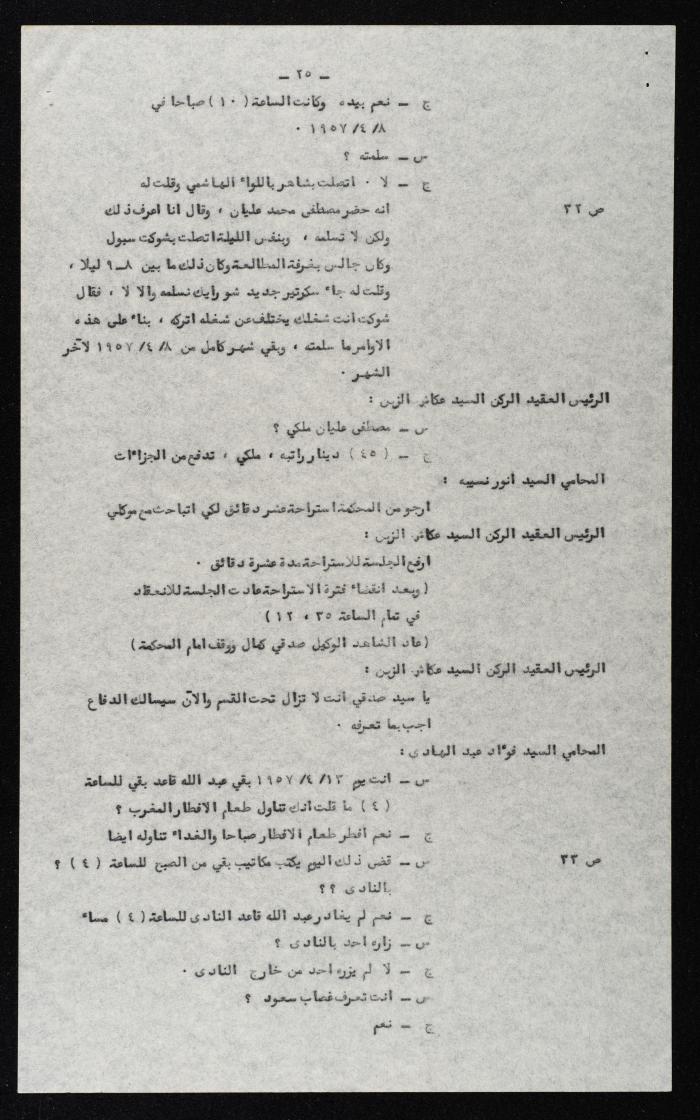 ـ ٢٥ ـ
ج ـ نعم بيده وكانت الساعة ( ١٠ ) صباحا في
٨/ ٤/ ١٩٥٧ ٠
س ـ سلمته ؟
ج ـ لا ٠ اتصلت بشاهر باللواء الهاشمي وقلت له
ص ٣٢ انه حضر مصطفى محمد عليان ، وقال انا اعرف ذلك
ولكن لا تسلمه ، وبنفس الليلة اتصلت بشوكت سبول
وكان جالس بغرفة المطالعة وكان ذلك ما بين ٨ـ٩ ليلا ،
وقلت له جاء سكرتير جديد شو رايك نسلمه والا لا ، فقال
شوكت انت شغلك يختلف عن شغله اتركه ، بناء على هذه
الاوامر ما سلمته ، وبقي شهر كامل من ٨/ ٤/ ١٩٥٧ لآخر
الشهر ٠
الرئيس العقيد الركن السيد عكاش الزبن :
س ـ مصطفى عليان ملكي ؟
ج ـ ( ٤٥ ) دينار راتبه ، ملكي ، تدفع من الجزاءات
المحامي السيد انور نسيبه :
ارجو من المحكمة استراحة عشر دقائق لكي اتباحث مع موكلي
الرئيس العقيد الركن السيد عكاش الزبن :
ارفع الجلسة للاستراحة مدة عشرة دقائق ٠
( وبعد انقضاء فترة الاستراحة عادت الجلسة للانعقاد
في تمام الساعة ٣٥ ، ١٢ )
(عاد الشاهد الوكيل صدقي كمال ووقف امام المحكمة)
الرئيس العقيد الركن السيد عكاش الزبن :
يا سيد صدقي انت لا تزال تحت القسم والآن سيسالك الدفاع
اجب بما تعرفه ٠
المحامي السيد فوءاد عبد الهادى :
س ـ انت يوم ١٣/ ٤/ ١٩٥٧ بقي عبد الله قاعد بقي للساعة
( ٤ ) ما قلت انك تناول طعام الافطار المغرب ؟
ج ـ نعم افطر طعام الافطار صباحا والغداء تناوله ايضا
ص ٣٣ س ـ قضى ذلك اليوم يكتب مكاتيب بقي من الصبح للساعة ( ٤ ) ؟
بالنادى ؟ ؟
ج ـ نعم لم يغادر عبد الله قاعد النادى للساعة ( ٤ ) مساء
س ـ زاره احد بالنادى ؟
ج ـ لا لم يزره احد من خارج النادى ٠
س ـ انت تعرف غصاب سعود ؟
ج ـ نعم